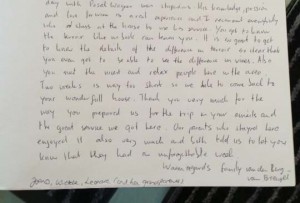 day with Pascal Wagner was stupendous. His knowledge, passion
and love for wine is a real experience and I recommend everybody
who stays at the house to use his service. You get to know
the terroir like no book can learn you. It is so great to get
to know the details of the difference in terroir so clear that
you even get to be able to see the difference in wines. Also
you met the most and relax people here in the area.
Two weeks is way too short so we hope to come back to
your wonderful house. Thank you very much for the
way you prepared us for the trip in your emails and
the good service we got here. Our parents who stayed here
enjoyed it also very much and both told us to let you
know that they had an unforgettable week.
Warm regards Family van den Berg
van
(and grandparents)